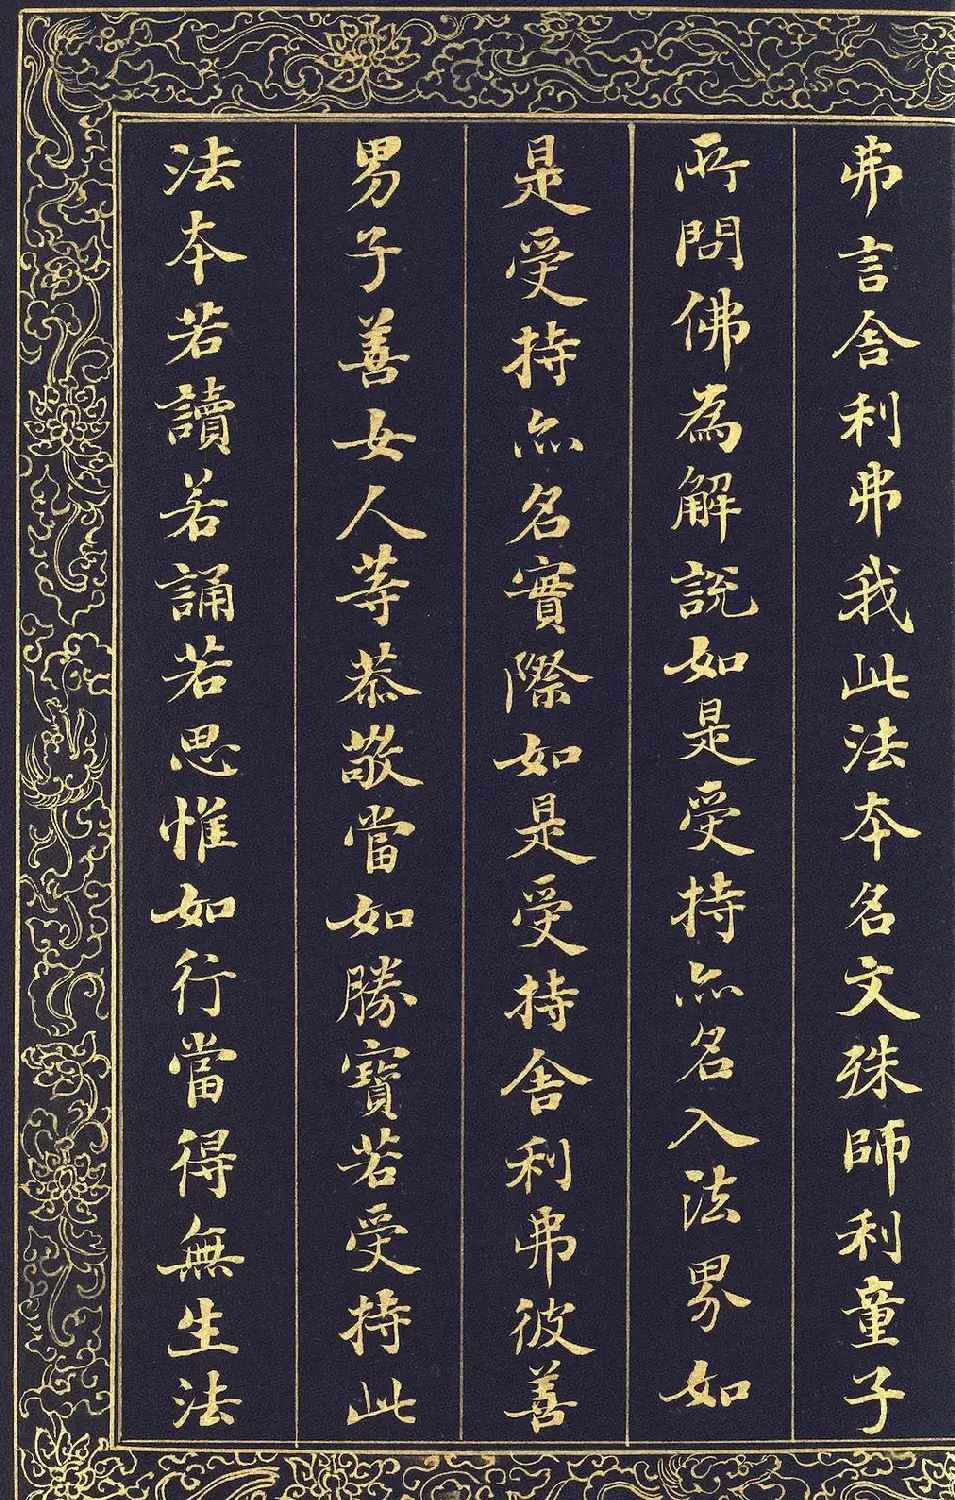 弗言舍利弗我此法本名文殊師利童子
所問佛為解說如是受持亦名入法界如
是受持亦名實際如是受持舍利弗彼善
男子善女人等恭敬當如勝寶若受持此
法本若讀若誦若思惟如行當得無生法